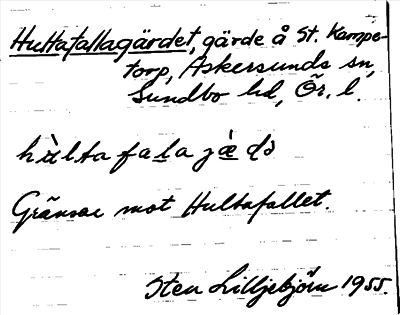 Hultafallagärdet, gärde å St. Kampe-
torp, Askersunds sn,
Sundbo hd, Ör. l.
Gränsar mot Hultafallet.
Sten Lilljebjörn 1955.